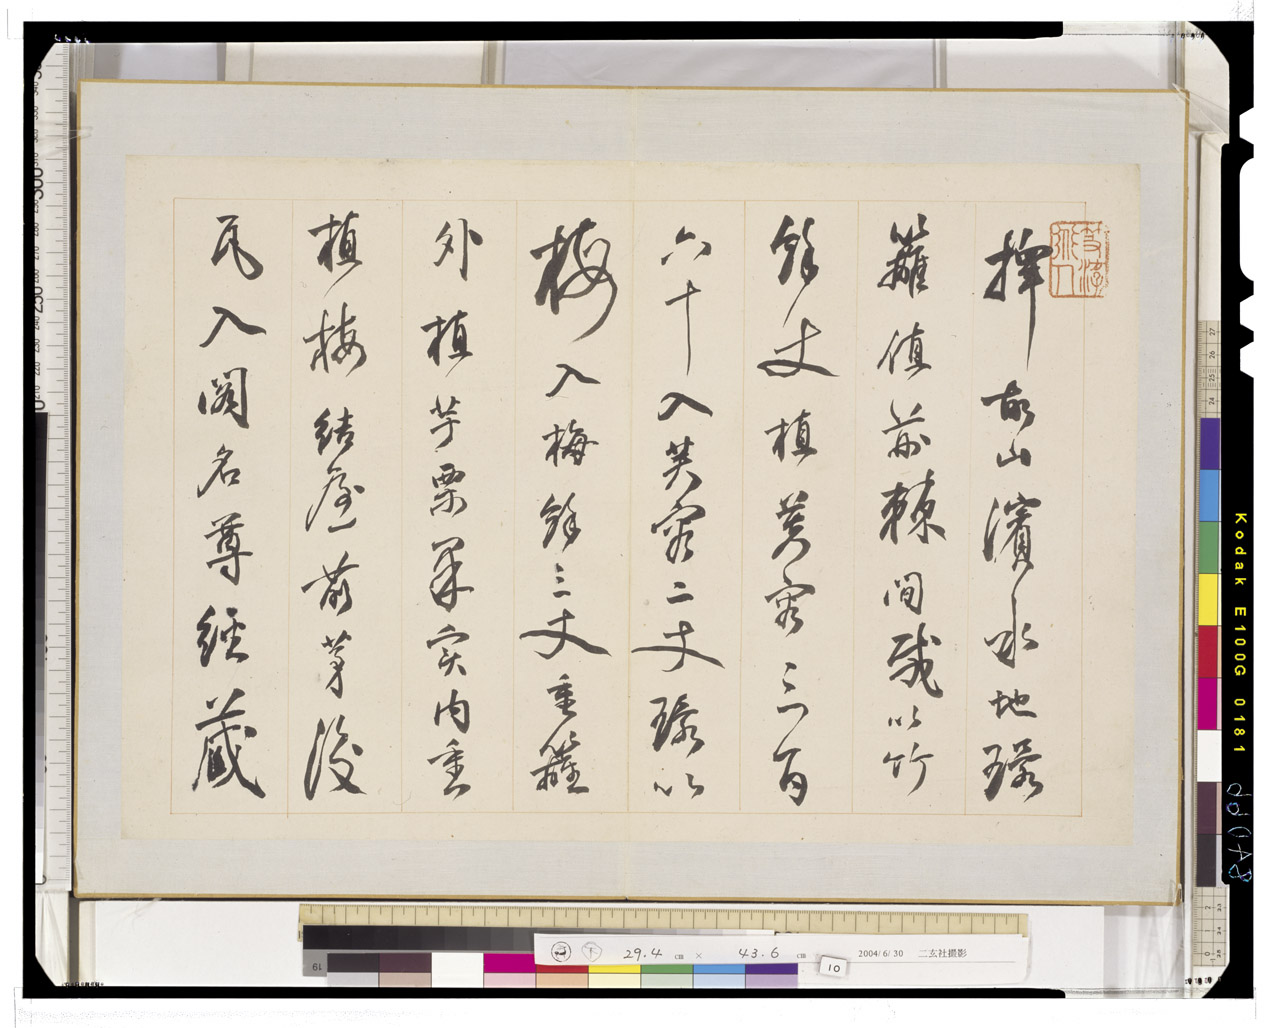 擇故山濱水地環
籬植荊棘間栽以竹
餘丈植芙蓉三百
六十入芙蓉二丈環以
梅入梅餘三丈重籬
外植芋栗果实内重
植梅結屋前茅後
瓦入閣名尊經藏
Kodak E100G 0181
下 29.4 cm × 43.6 cm 2004/6/30 二玄社撮影
10
19